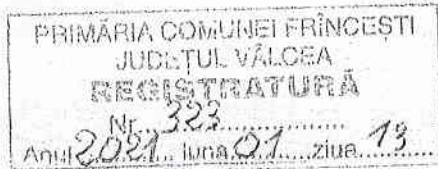 PRIMĂRIA COMUNEI FRÎNCEȘTI
JUDEȚUL VÂLCEA
REGISTRATURĂ
Nr....323..............
Anul 2021... luna 01....ziua 13